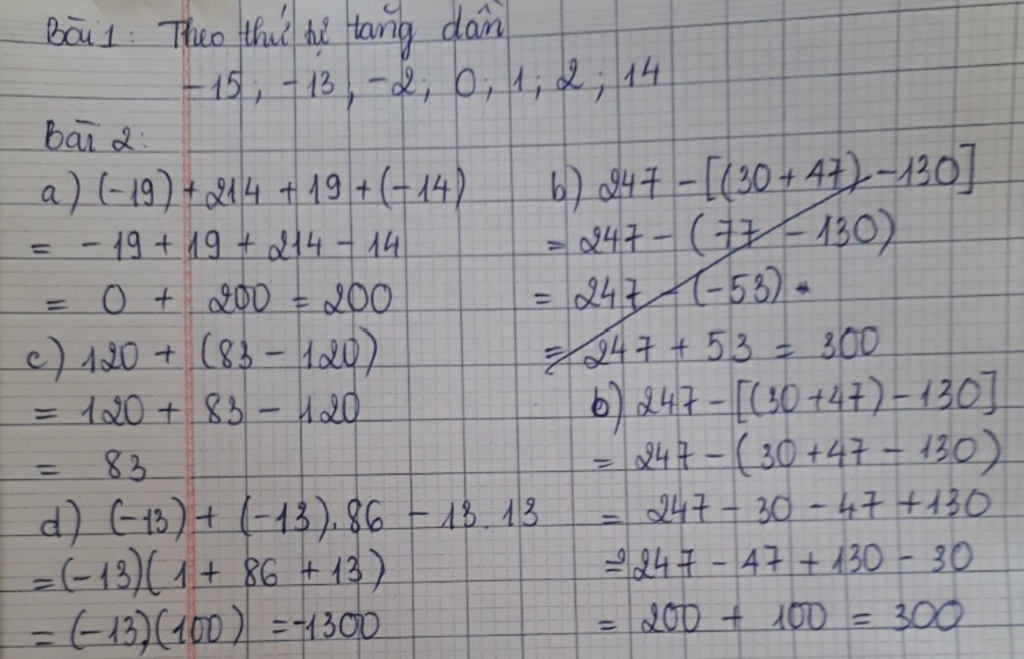 Bài 1: Theo thứ tự tăng dần
-15; -13, -2; 0; 1; 2; 14
Bài 2:
a) (-19) + 214 + 19 + (-14)
= -19 + 19 + 214 - 14
= 0 + 200 = 200
c) 120 + (83 - 120)
= 120 + 83 - 120
= 83
d) (-13) + (-13).86 - 13.13
= (-13)(1 + 86 + 13)
= (-13)(100) = -1300
b) 247 - [(30 + 47) - 130]
= 247 - (77 - 130)
= 247 - (-53)
= 247 + 53 = 300
b) 247 - [(30 + 47) - 130]
= 247 - (30 + 47 - 130)
= 247 - 30 - 47 + 130
= 247 - 47 + 130 - 30
= 200 + 100 = 300